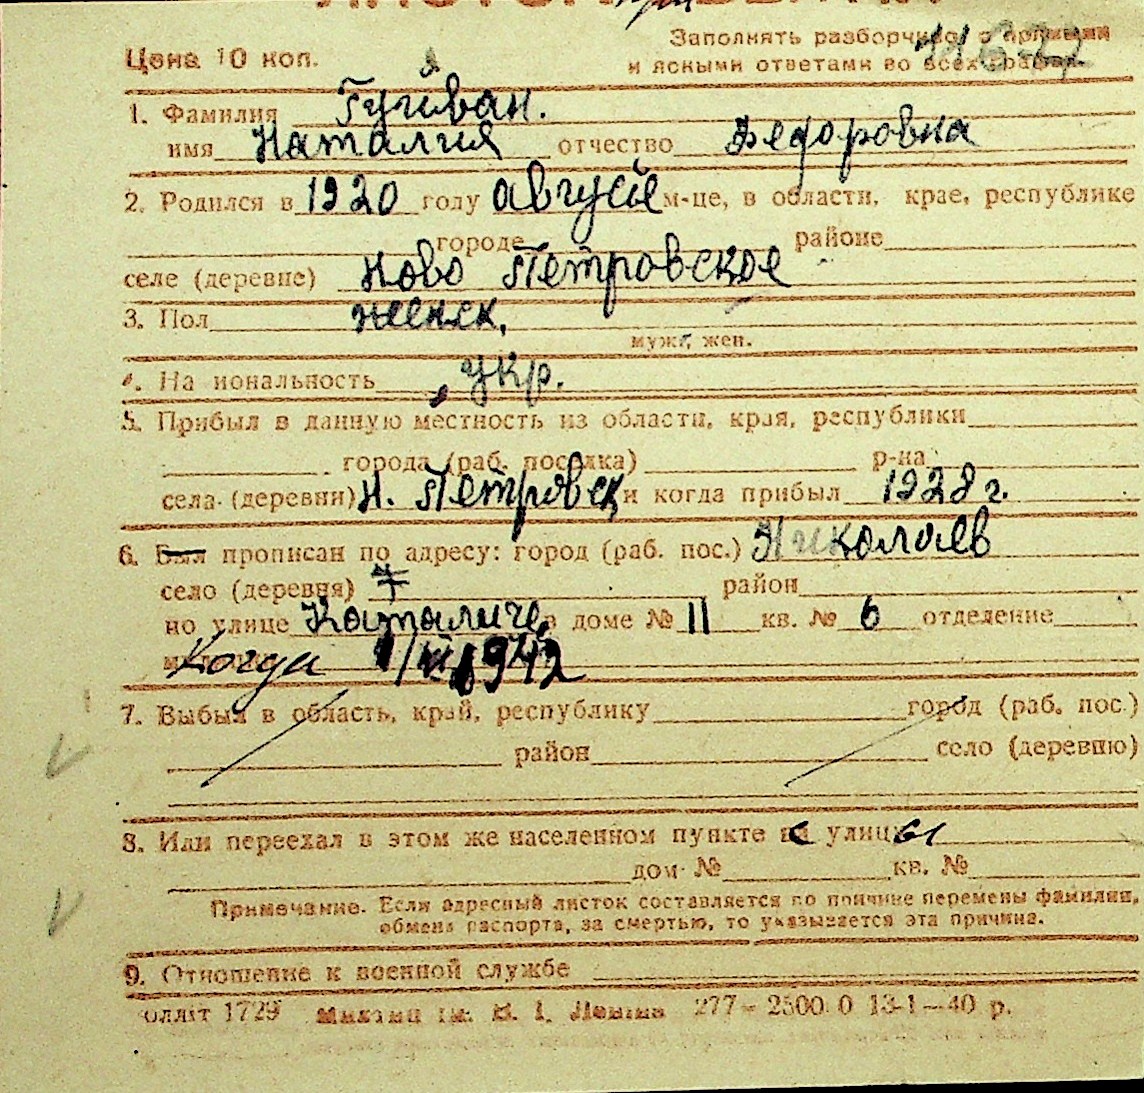 Цена 10 коп.
Заполнять разборчиво с прямыми
и ясными ответами во всех графах.
1. Фамилия Гугиван.
имя Наталия отчество Федоровна
2. Родился в 1920 году август м-це, в области, крае, республике
городе районе
селе (деревне) Ново Петровское
3. Пол женск.
мужс, жен.
4. На иональность укр.
5. Прибыл в данную местность из области, края, республики
города (раб. поселка) р-на
села (деревни) Н. Петровск и когда прибыл 1928 г.
6. Был прописан по адресу: город (раб. пос.) Николаев
село (деревня) район
по улице Католиче. в доме № 11 кв. № 6 отделение
Когда 1/VI 1942
7. Выбыл в область, край, республику город (раб. пос.)
район село (деревню)
8. Или переехал в этом же населенном пункте с улицы
дом № кв. №
Примечание. Если адресный листок составляется по причине перемены фамилии,
обмена паспорта, за смертью, то указывается эта причина.
9. Отношение к военной службе
олліт 1729 Миколаїв ім. В. І. Леніна 277 – 2500.0 13-1–40 р.